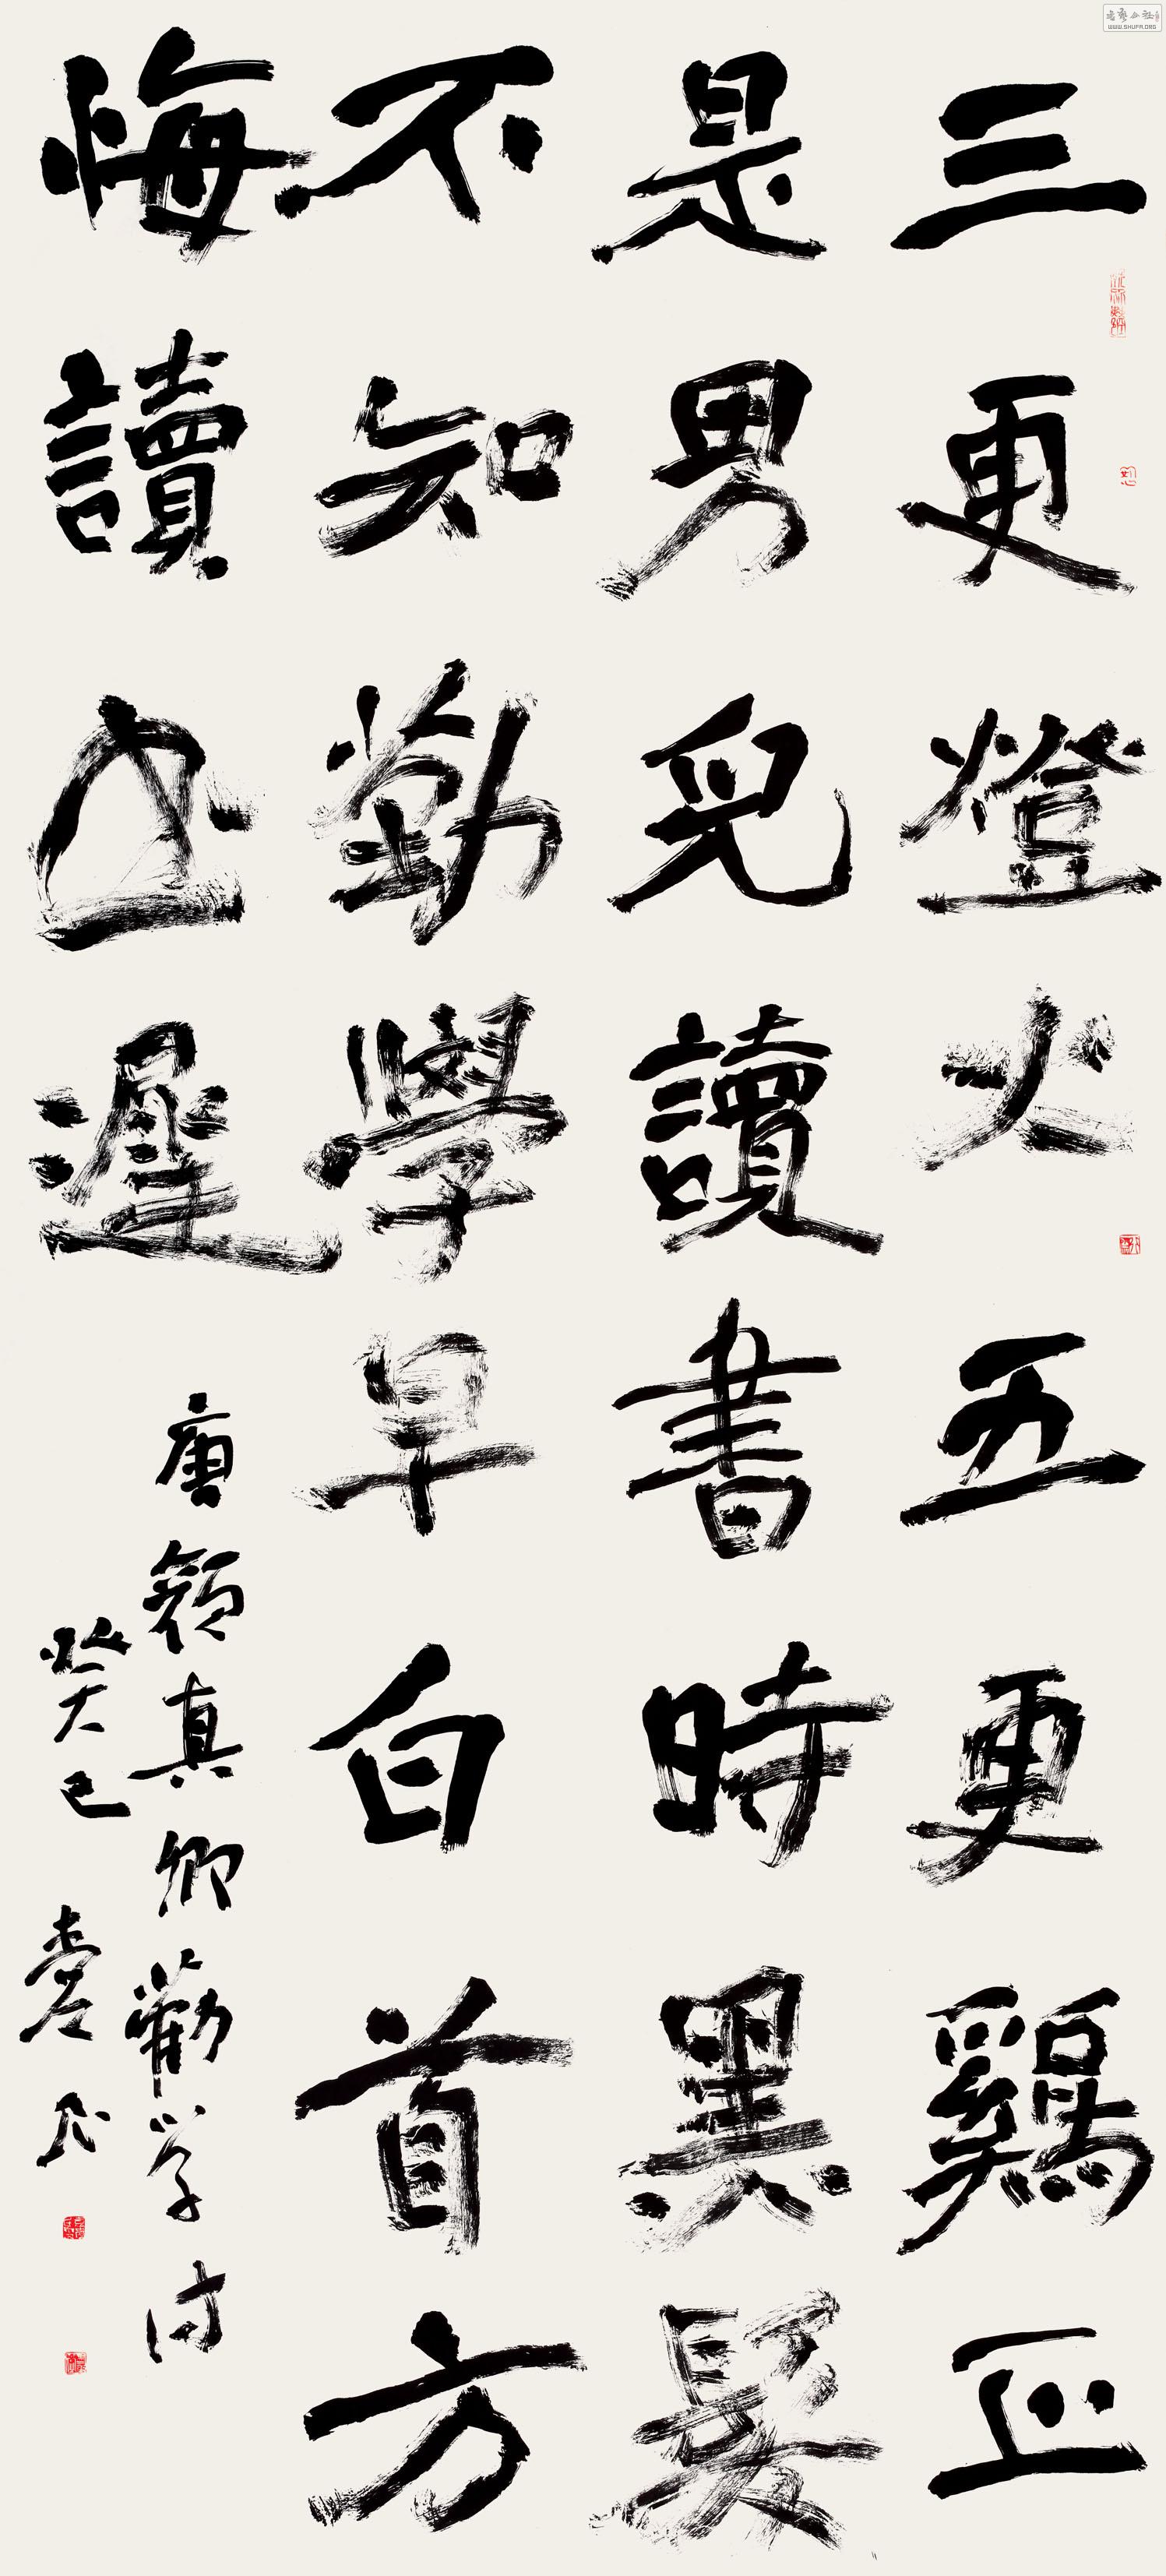 三更燈火五更鷄正
是男兒讀書時黑髮
不知勤學早白首方
悔讀書遲
唐顏真卿勸学诗
癸巳
WWW.SHUFA.ORG